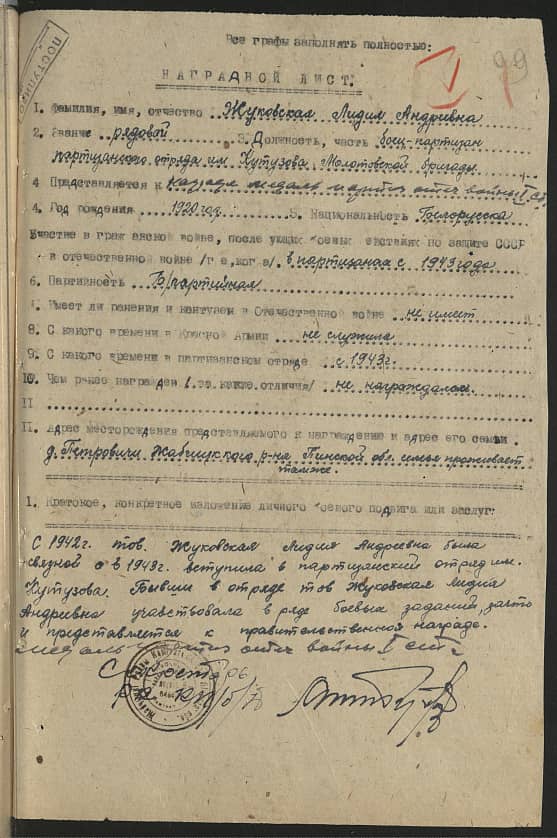 Все графы заполнять полностью:
99
НАГРАДНОЙ ЛИСТ.
1. Фамилия, имя, отчество Жуковская Лидия Андреевна
2. Звание рядовой 3. Должность, часть боец-партизан
партизанского отряда им. Кутузова, Молотовской бригады.
4 Представляется к медаль партиз. отеч. войны I ст.
4. Год рождения 1920 год 5. Национальность Белорусска
Участие в гражданской войне, последующих боевых действиях по защите СССР
в отечественной войне /где, когда/ в партизанах с 1943 года
6. Партийность Б/партийная
Имеет ли ранения и контузии в Отечественной войне не имеет
8. С какого времени в Красной Армии не служила
9. С какого времени в партизанском отряде с 1943 г.
10. Чем ранее награжден /за какие отличия/ не награждалась.
II
II. Адрес месторождения представляемого к награждению и адрес его семьи
д. Петровичи Жабчицкого р-на Пинской обл. семья проживает
там же.
1. Краткое, конкретное изложение личного боевого подвига или заслуг
С 1942 г. тов. Жуковская Лидия Андреевна была
связной а в 1943 г. вступила в партизанский отряд им.
Кутузова. Бывши в отряде тов Жуковская Лидия
Андреевна участвовала в ряде боевых заданий, за что
и представляется к правительственной награде.
медаль партиз отеч войны I ст
Секретарь
РК КП/б/Б